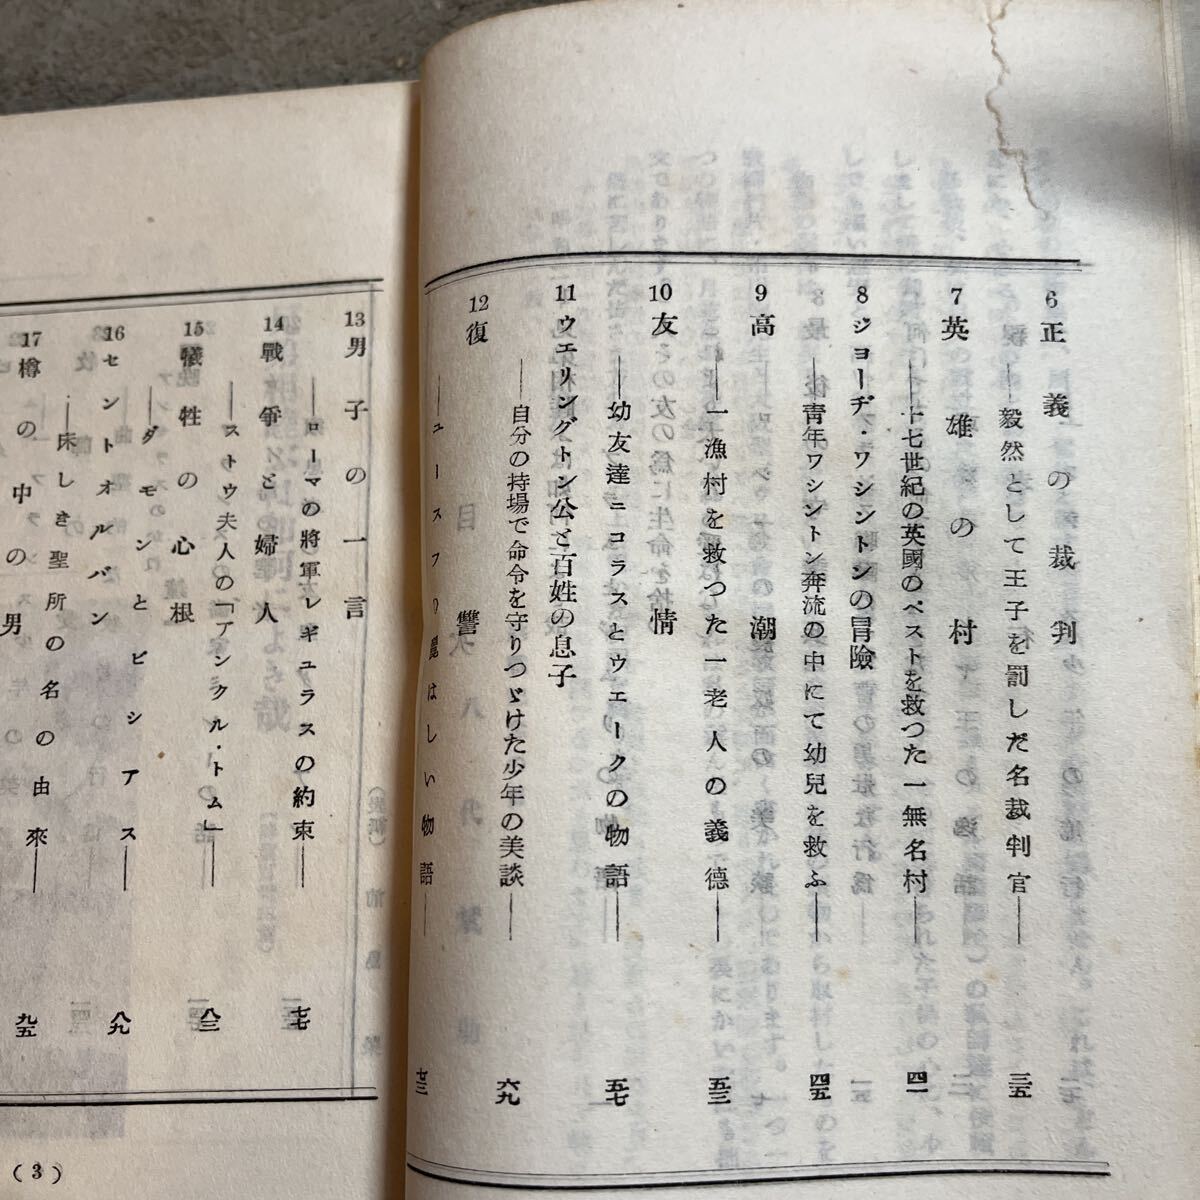 6 正義の裁判
――毅然として王子を罰しだ名裁判官―― 三五
7 英雄の村
――十七世紀の英國のペストを救つた一無名村―― 四一
8 ジヨーヂ・ワシントンの冒險
――靑年ワシントン奔流の中にて幼兒を救ふ―― 四五
9 高潮
――一漁村を救つた一老人の義德―― 五三
10 友情
――幼友達ニコラスとウエークの物語―― 五七
11 ウエリングトン公と百姓の息子
――自分の持場で命令を守りつゞけた少年の美談―― 六九
12 復讐
――ユースフの麗はしい物語―― 七三
13 男子の一言
――ローマの將軍レギユラスの約束―― 七七
14 戰爭と婦人
――ストウ夫人の「アンクル・トム」―― 八三
15 犠牲の心根
――ダモンとピシアス―― 八九
16 セントオルバン
――床しき聖所の名の由來―― 九五
17 樽の中の男
(3)